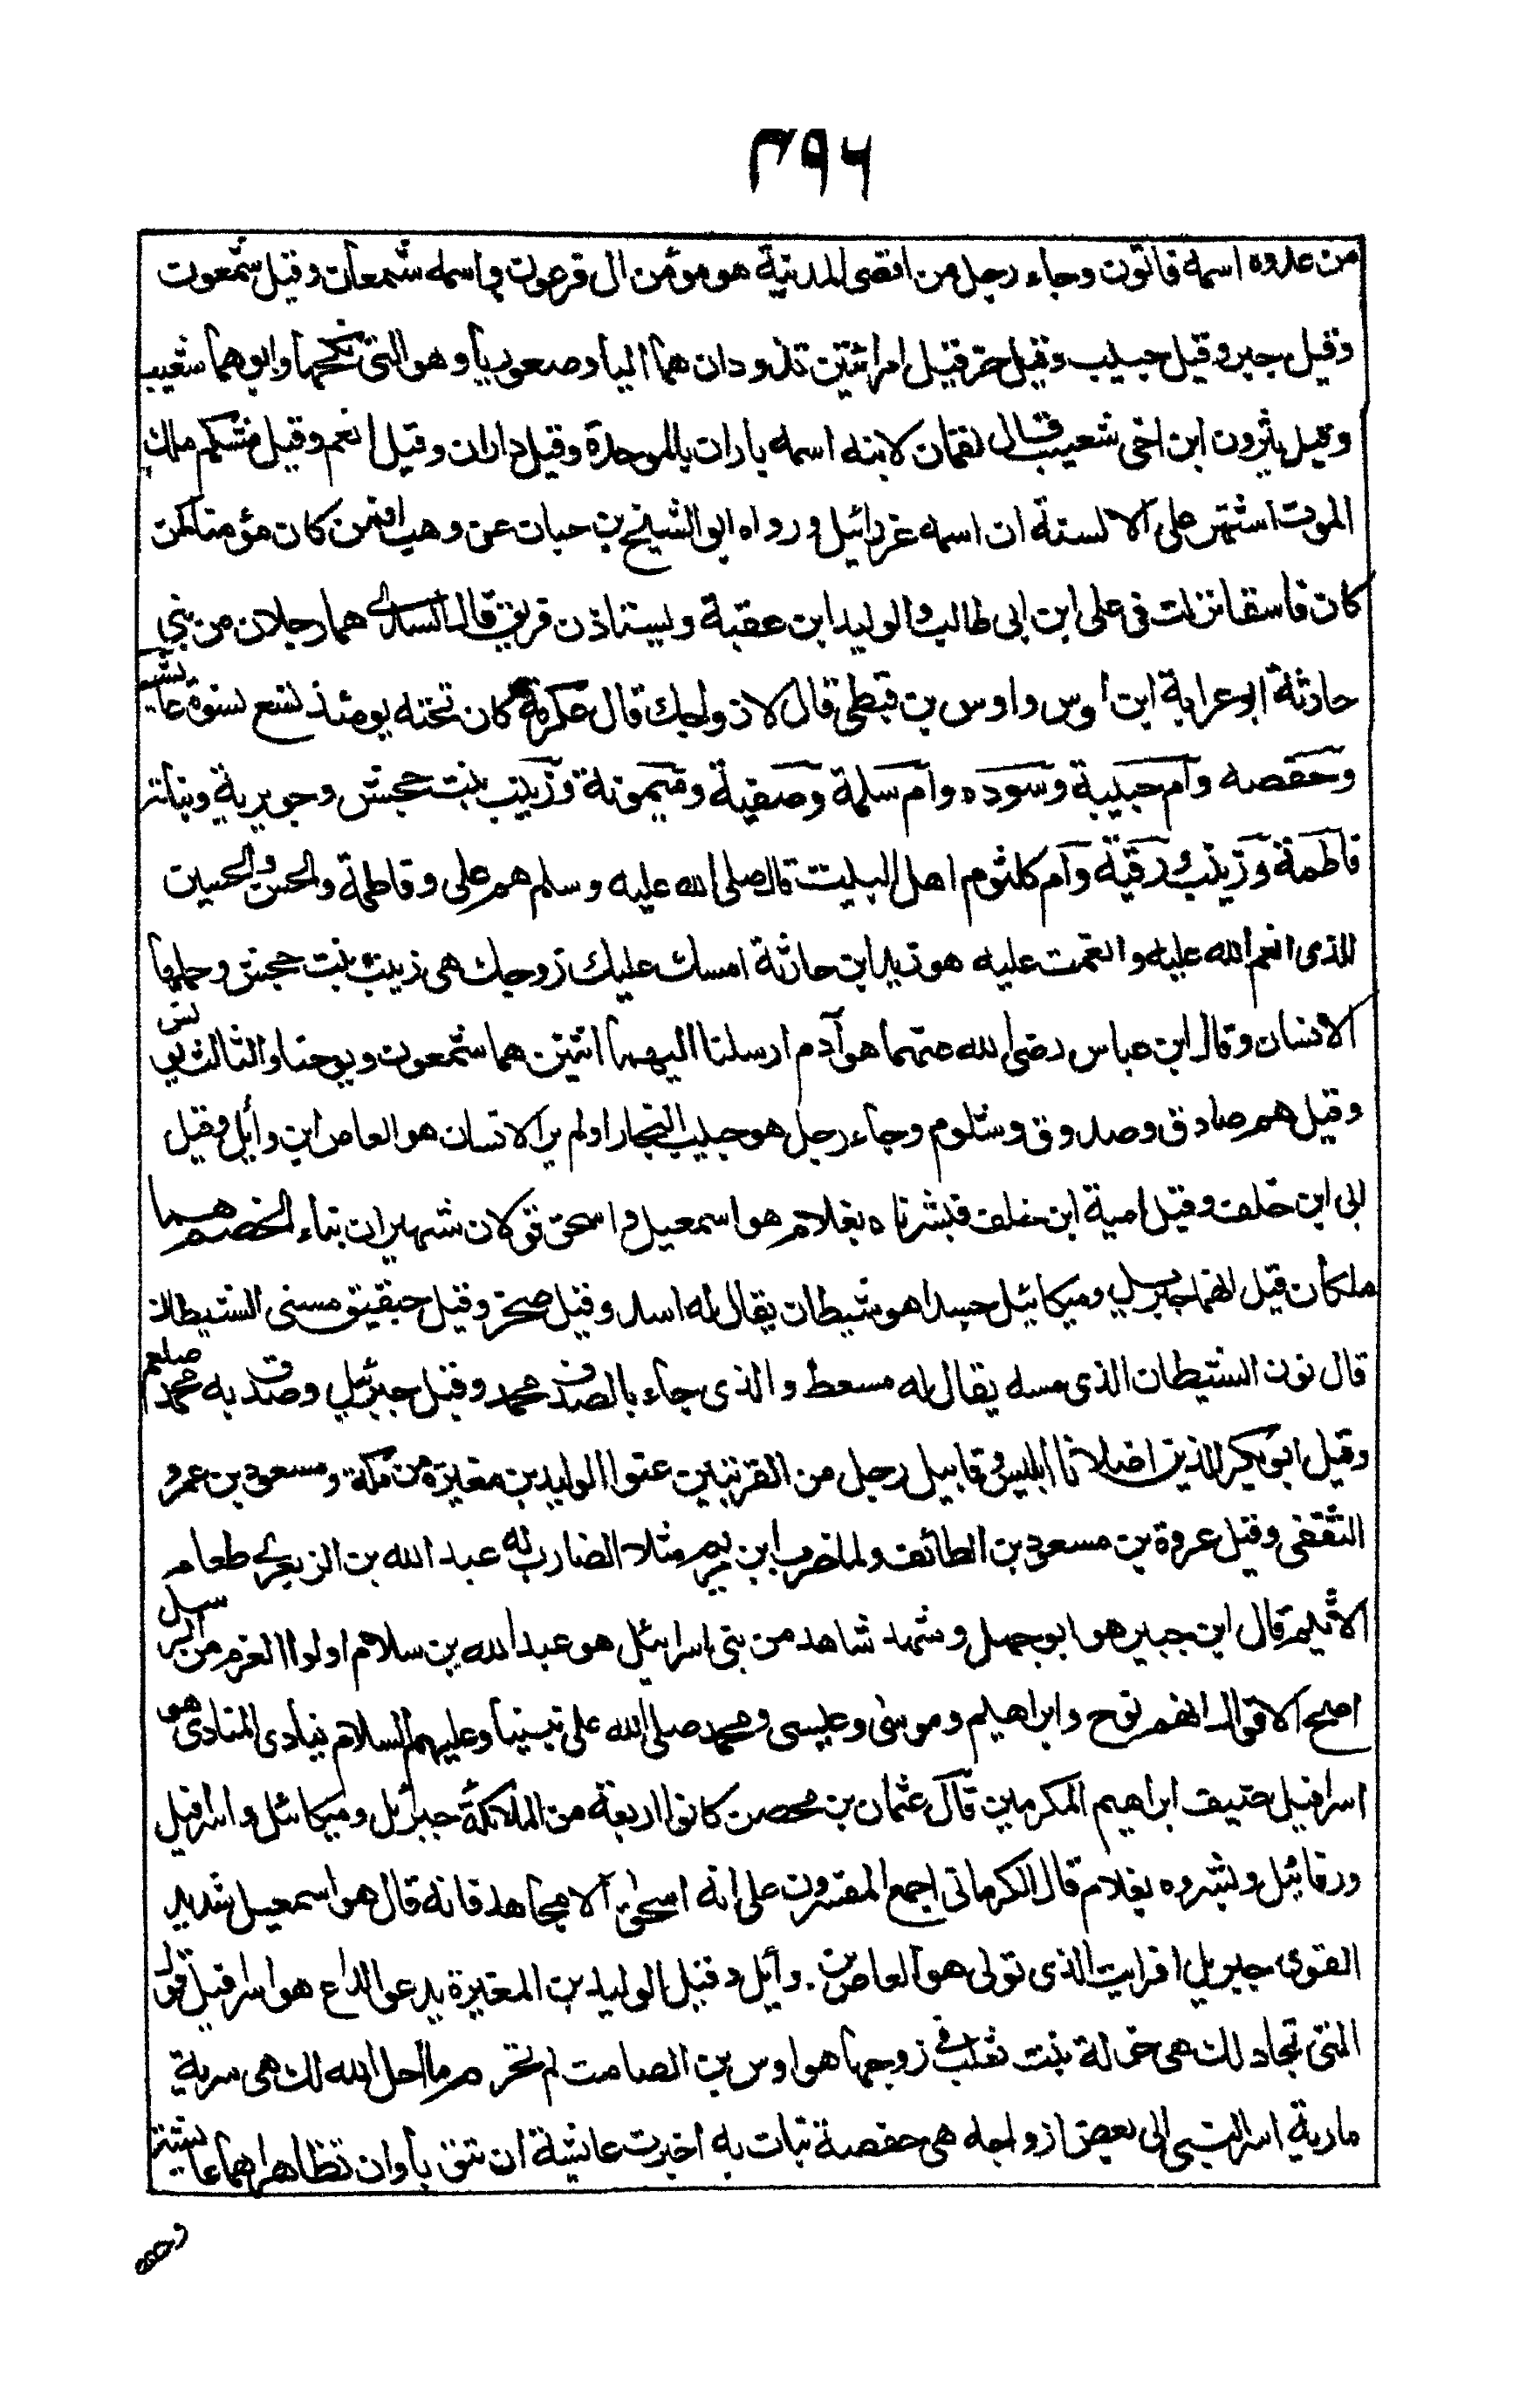 ٣٩٦
من عدوه اسمه فاتون وجاء رجل من اقصى المدنية هو مؤمن ال فرعون و اسمه شمعان وقيل شمعون
وقيل جبر وقيل حبيب وقيل حزقيل امراتين تذودان هما اليا وصعوبيا وهو التى نكحها وابوهما شعيب
وقيل يثرون ابن اخى شعيب قال لقمان لابنه اسمه باران بالموحدة وقيل داران وقيل انعم وقيل مشكم ملك
الموت اشتهر على الالسنة ان اسمه عزرائيل ورواه ابو الشيخ بن حبان عن وهب افمن كان مؤمنا كمن
كان فاسقا نزلت فى على ابن ابى طالب والوليد ابن عقبة ويستاذن فريق قال السدى هما رجلان من بني
حارثة ابو عرابة ابن اوس واوس بن قيظى قال لازواجك قال عكرمة كان تحته يومئذ تسع نسوة عايشه
وحفصه وام حبيبة وسوده وام سلمة وصفية وميمونة وزينب بنت جحش وجويرية وبناته
فاطمة وزينب ورقية وام كلثوم اهل البيت قال صلى الله عليه وسلم هم على وفاطمة والحسن والحسين
للذى انعم الله عليه وانعمت عليه هو زيد ابن حارثة امسك عليك زوجك هى زينب بنت جحش وحملها
الانسان وقال ابن عباس رضى الله عنهما هو آدم ارسلنا اليهم اثنين هما شمعون ويوحنا والثالث بولس
وقيل هم صادق وصدوق وشلوم وجاء رجل هو حبيب النجار اولم ير الانسان هو العاص ابن وائل وقيل
ابى ابن خلف وقيل امية ابن خلف فبشرناه بغلام هو اسمعيل و اسحق قولان شهيران نباء الخصم هما
ملكان قيل انهما جبريل وميكائيل جسدا هو شيطان يقال له اسد وقيل صخر وقيل حبقيق مسنى الشيطان
قال نون الشيطان الذى مسه يقال له مسعط والذى جاء بالصدق محمد وقيل جبرئيل وصدق به محمد صلعم
وقيل ابو بكر الذين اضلانا ابليس وقابيل رجل من القريتين عنوا الوليد بن مغيرة من مكة ومسعود بن عمرو
الثقفى وقيل عروة بن مسعود بن الطائف ولما ضرب ابن مريم مثلا الضارب له عبد الله بن الزبعرى طعام
الاثيم قال ابن جبير هو ابو جهل وشهد شاهد من بنى اسرائيل هو عبد الله بن سلام اولوا العزم من الرسل
اصح الاقوال انهم نوح وابراهيم وموسى وعيسى ومحمد صلى الله على نبينا وعليهم السلام ينادى المنادى هو
اسرافيل ضيف ابراهيم المكرمين قال عثمان بن محصن كانوا اربعة من الملائكة جبرئيل وميكائيل واسرافيل
ورفائيل وبشروه بغلام قال الكرمانى اجمع المفسرون على انه اسحق الا مجاهد فانه قال هو اسمعيل شديد
القوى جبريل افرايت الذى تولى هو العاص بن وائل وقيل الوليد بن المغيرة يدعو الداع هو اسرافيل قول
التى تجادلك هى خولة بنت ثعلب فى زوجها هو اوس بن الصامت لم تحرم ما احل الله لك هى سرية
مارية اسر النبى الى بعض ازواجه هى حفصة نبات به اخبرت عائشة ان تتوبا وان تظاهرا هما عائشة
وحفصه